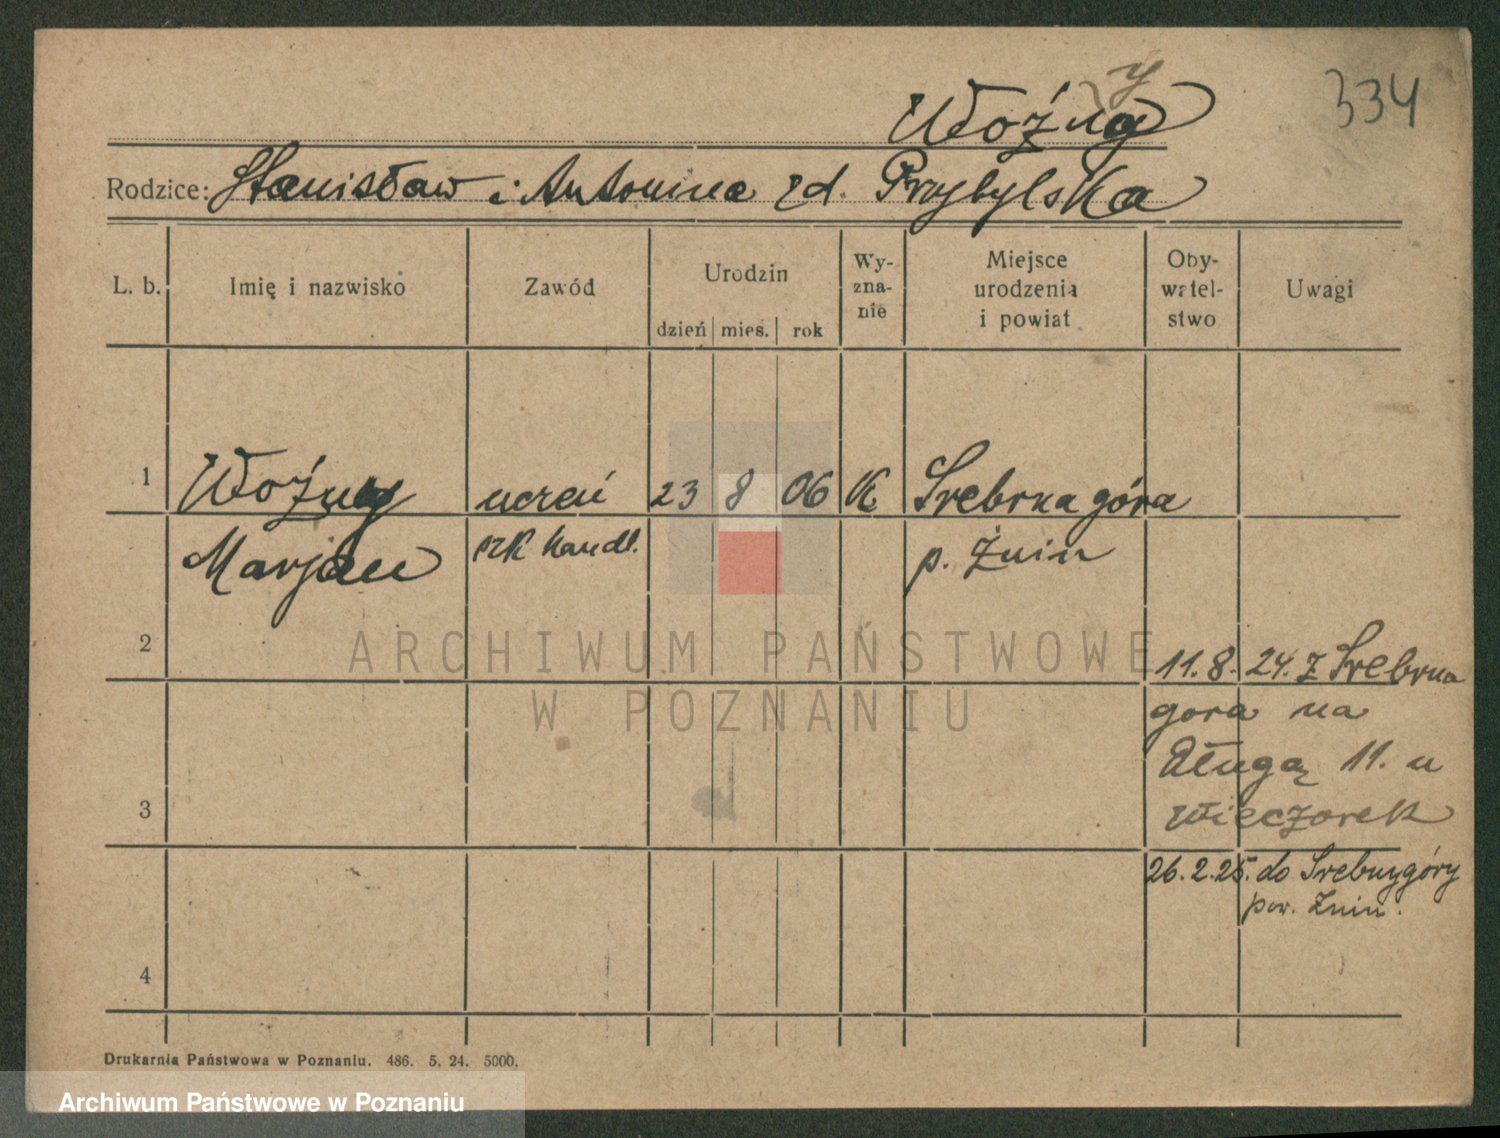 334
Woźny
Rodzice: Stanisław i Antonina zd. Przybylska
L. b. Imię i nazwisko Zawód Urodzin dzień mies. rok Wy-zna-nie Miejsce urodzenia i powiat Oby-watel-stwo Uwagi
1 Woźny uczeń 23 8 06 K. Srebrna góra
Marjan szk handl. p. Żnin
2 11.8. 24. z Srebrna
gora na
Długą 11. u
Wieczorek
3
26.2.25. do Srebrnygóry
pow. Żnin.
4
Drukarnia Państwowa w Poznaniu. 486. 5. 24. 5000.
ARCHIWUM PAŃSTWOWE
W POZNANIU
Archiwum Państwowe w Poznaniu